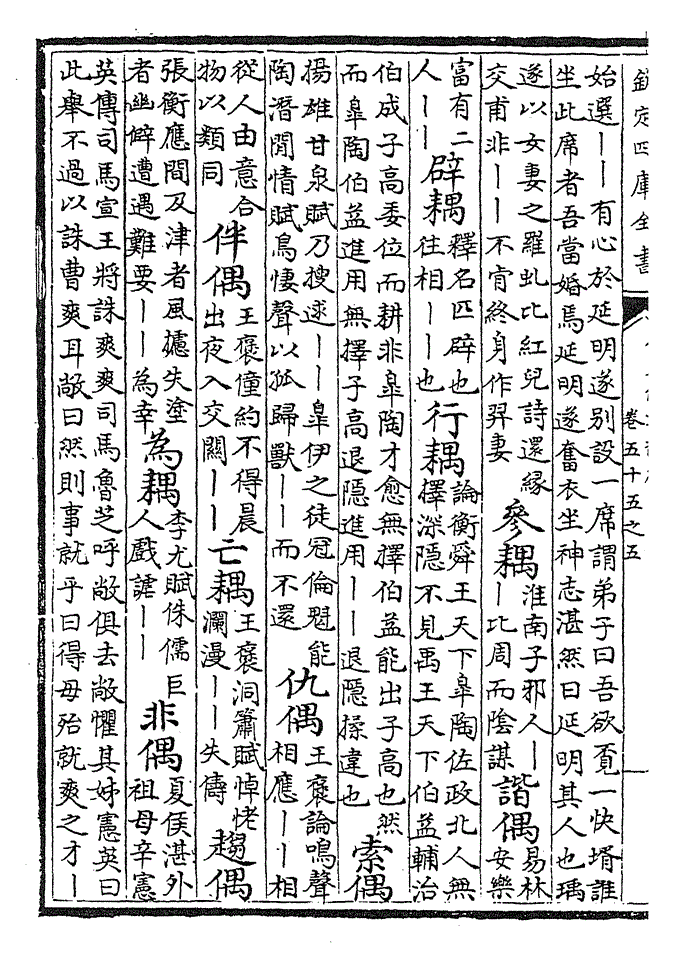 欽定四庫全書
卷五十五之五
始選丨丨有心於延明遂别設一席謂弟子曰吾欲覔一快壻誰
坐此席者吾當婚焉延明遂奮衣坐神志湛然曰延明其人也瑀
遂以女妻之羅虬比紅兒詩還緣
交甫非丨丨不肯終身作羿妻
參耦
淮南子邪人丨
丨比周而陰謀
諧偶
易林
安樂
富有二
人丨丨
辟耦
釋名匹辟也
往相丨丨也
行耦
論衡舜王天下臯陶佐政北人無
擇深隱不見禹王天下伯益輔治
伯成子高委位而耕非臯陶才愈無擇伯益能出子高也然
而臯陶伯益進用無擇子高退隱進用丨丨退隱操違也
索偶
揚雄甘泉賦乃搜逑丨丨臯伊之徒冠倫魁能
陶潛閒情賦鳥悽聲以孤歸獸丨丨而不還
仇偶
王褒論鳴聲
相應丨丨相
從人由意合
物以類同
伴偶
王褒僮約不得晨
出夜入交關丨丨
亡耦
王褒洞簫賦悼恅
瀾漫丨丨失儔
趨偶
張衡應間及津者風攄失塗
者幽僻遭遇難要丨丨為幸
為耦
李尤賦侏儒巨
人戲謔丨丨
非偶
夏侯湛外
祖母辛憲
英傳司馬宣王將誅爽爽司馬魯芝呼敞俱去敞懼其姊憲英曰
此舉不過以誅曹爽耳敞曰然則事就乎曰得毋殆就爽之才丨